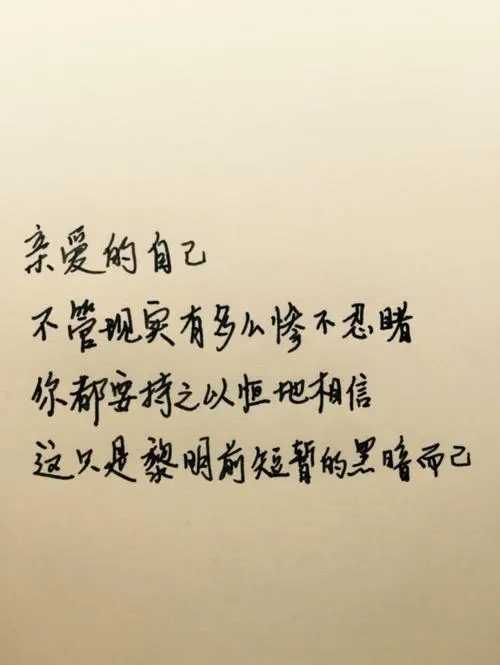 亲爱的自己
不管现实有多么惨不忍睹
你都要持之以恒地相信
这只是黎明前短暂的黑暗而已